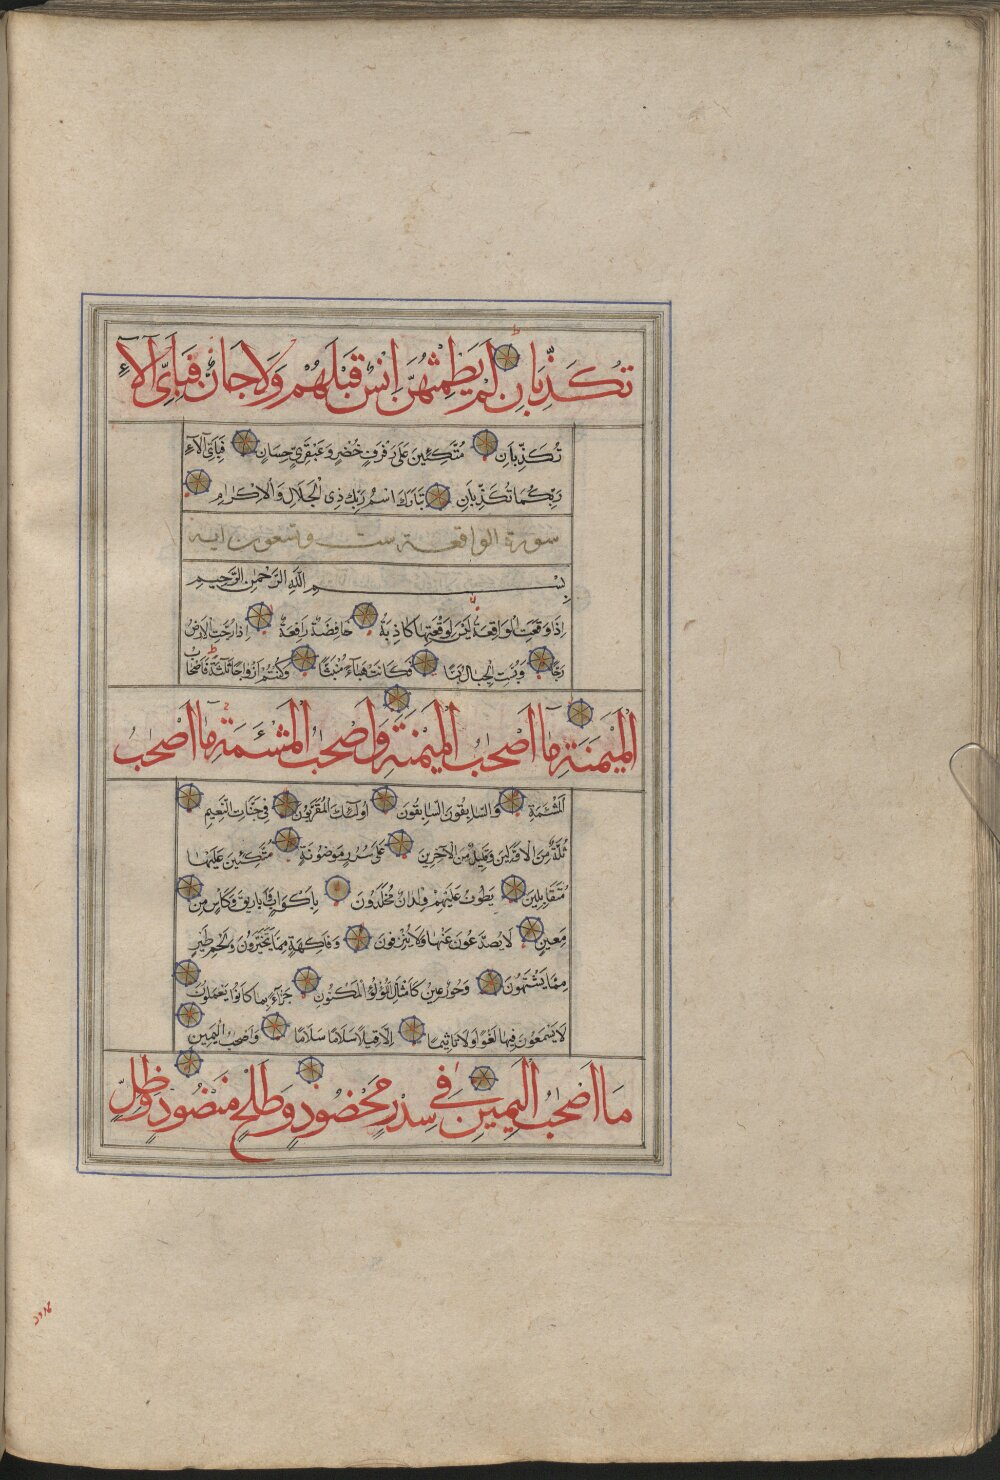 تُكَذِّبَانِ لَمْ يَطْمِثْهُنَّ اِنْسٌ قَبْلَهُمْ وَلَا جَانٌّ فَبِاَيِّ آلَآءِ
تُكَذِّبَانِ مُتَّكِئِينَ عَلَى رَفْرَفٍ خُضْرٍ وَعَبْقَرِيٍّ حِسَانٍ فَبِاَيِّ آلَآءِ
رَبِّكُمَا تُكَذِّبَانِ تَبَارَكَ اسْمُ رَبِّكَ ذِى الْجَلَالِ وَالْاِكْرَامِ
سورة الواقعة ست وتسعون اية
بِسْمِ اللّٰهِ الرَّحْمٰنِ الرَّحِيمِ
اِذَا وَقَعَتِ الْوَاقِعَةُ لَيْسَ لِوَقْعَتِهَا كَاذِبَةٌ خَافِضَةٌ رَافِعَةٌ اِذَا رُجَّتِ الْاَرْضُ
رَجًّا وَبُسَّتِ الْجِبَالُ بَسًّا فَكَانَتْ هَبَآءً مُنْبَثًّا وَكُنْتُمْ اَزْوَاجًا ثَلٰثَةً فَاَصْحَابُ
الْمَيْمَنَةِ مَآ اَصْحٰبُ الْمَيْمَنَةِ وَاَصْحٰبُ الْمَشْـَٔمَةِ مَآ اَصْحٰبُ
الْمَشْـَٔمَةِ وَالسَّابِقُونَ السَّابِقُونَ اُولٰٓئِكَ الْمُقَرَّبُونَ فِى جَنَّاتِ النَّعِيمِ
ثُلَّةٌ مِنَ الْاَوَّلِينَ وَقَلِيلٌ مِنَ الْآخِرِينَ عَلٰى سُرُرٍ مَوْضُونَةٍ مُتَّكِئِينَ عَلَيْهَا
مُتَقَابِلِينَ يَطُوفُ عَلَيْهِمْ وِلْدَانٌ مُخَلَّدُونَ بِاَكْوَابٍ وَاَبَارِيقَ وَكَاْسٍ مِنْ
مَعِينٍ لَا يُصَدَّعُونَ عَنْهَا وَلَا يُنْزِفُونَ وَفَاكِهَةٍ مِمَّا يَتَخَيَّرُونَ وَلَحْمِ طَيْرٍ
مِمَّا يَشْتَهُونَ وَحُورٌ عِينٌ كَاَمْثَالِ اللُّؤْلُؤِ الْمَكْنُونِ جَزَآءً بِمَا كَانُوا يَعْمَلُونَ
لَا يَسْمَعُونَ فِيهَا لَغْوًا وَلَا تَاْثِيمًا اِلَّا قِيلًا سَلَامًا سَلَامًا وَاَصْحٰبُ الْيَمِينِ
مَآ اَصْحٰبُ الْيَمِينِ فِى سِدْرٍ مَخْضُودٍ وَطَلْحٍ مَنْضُودٍ وَظِلٍّ